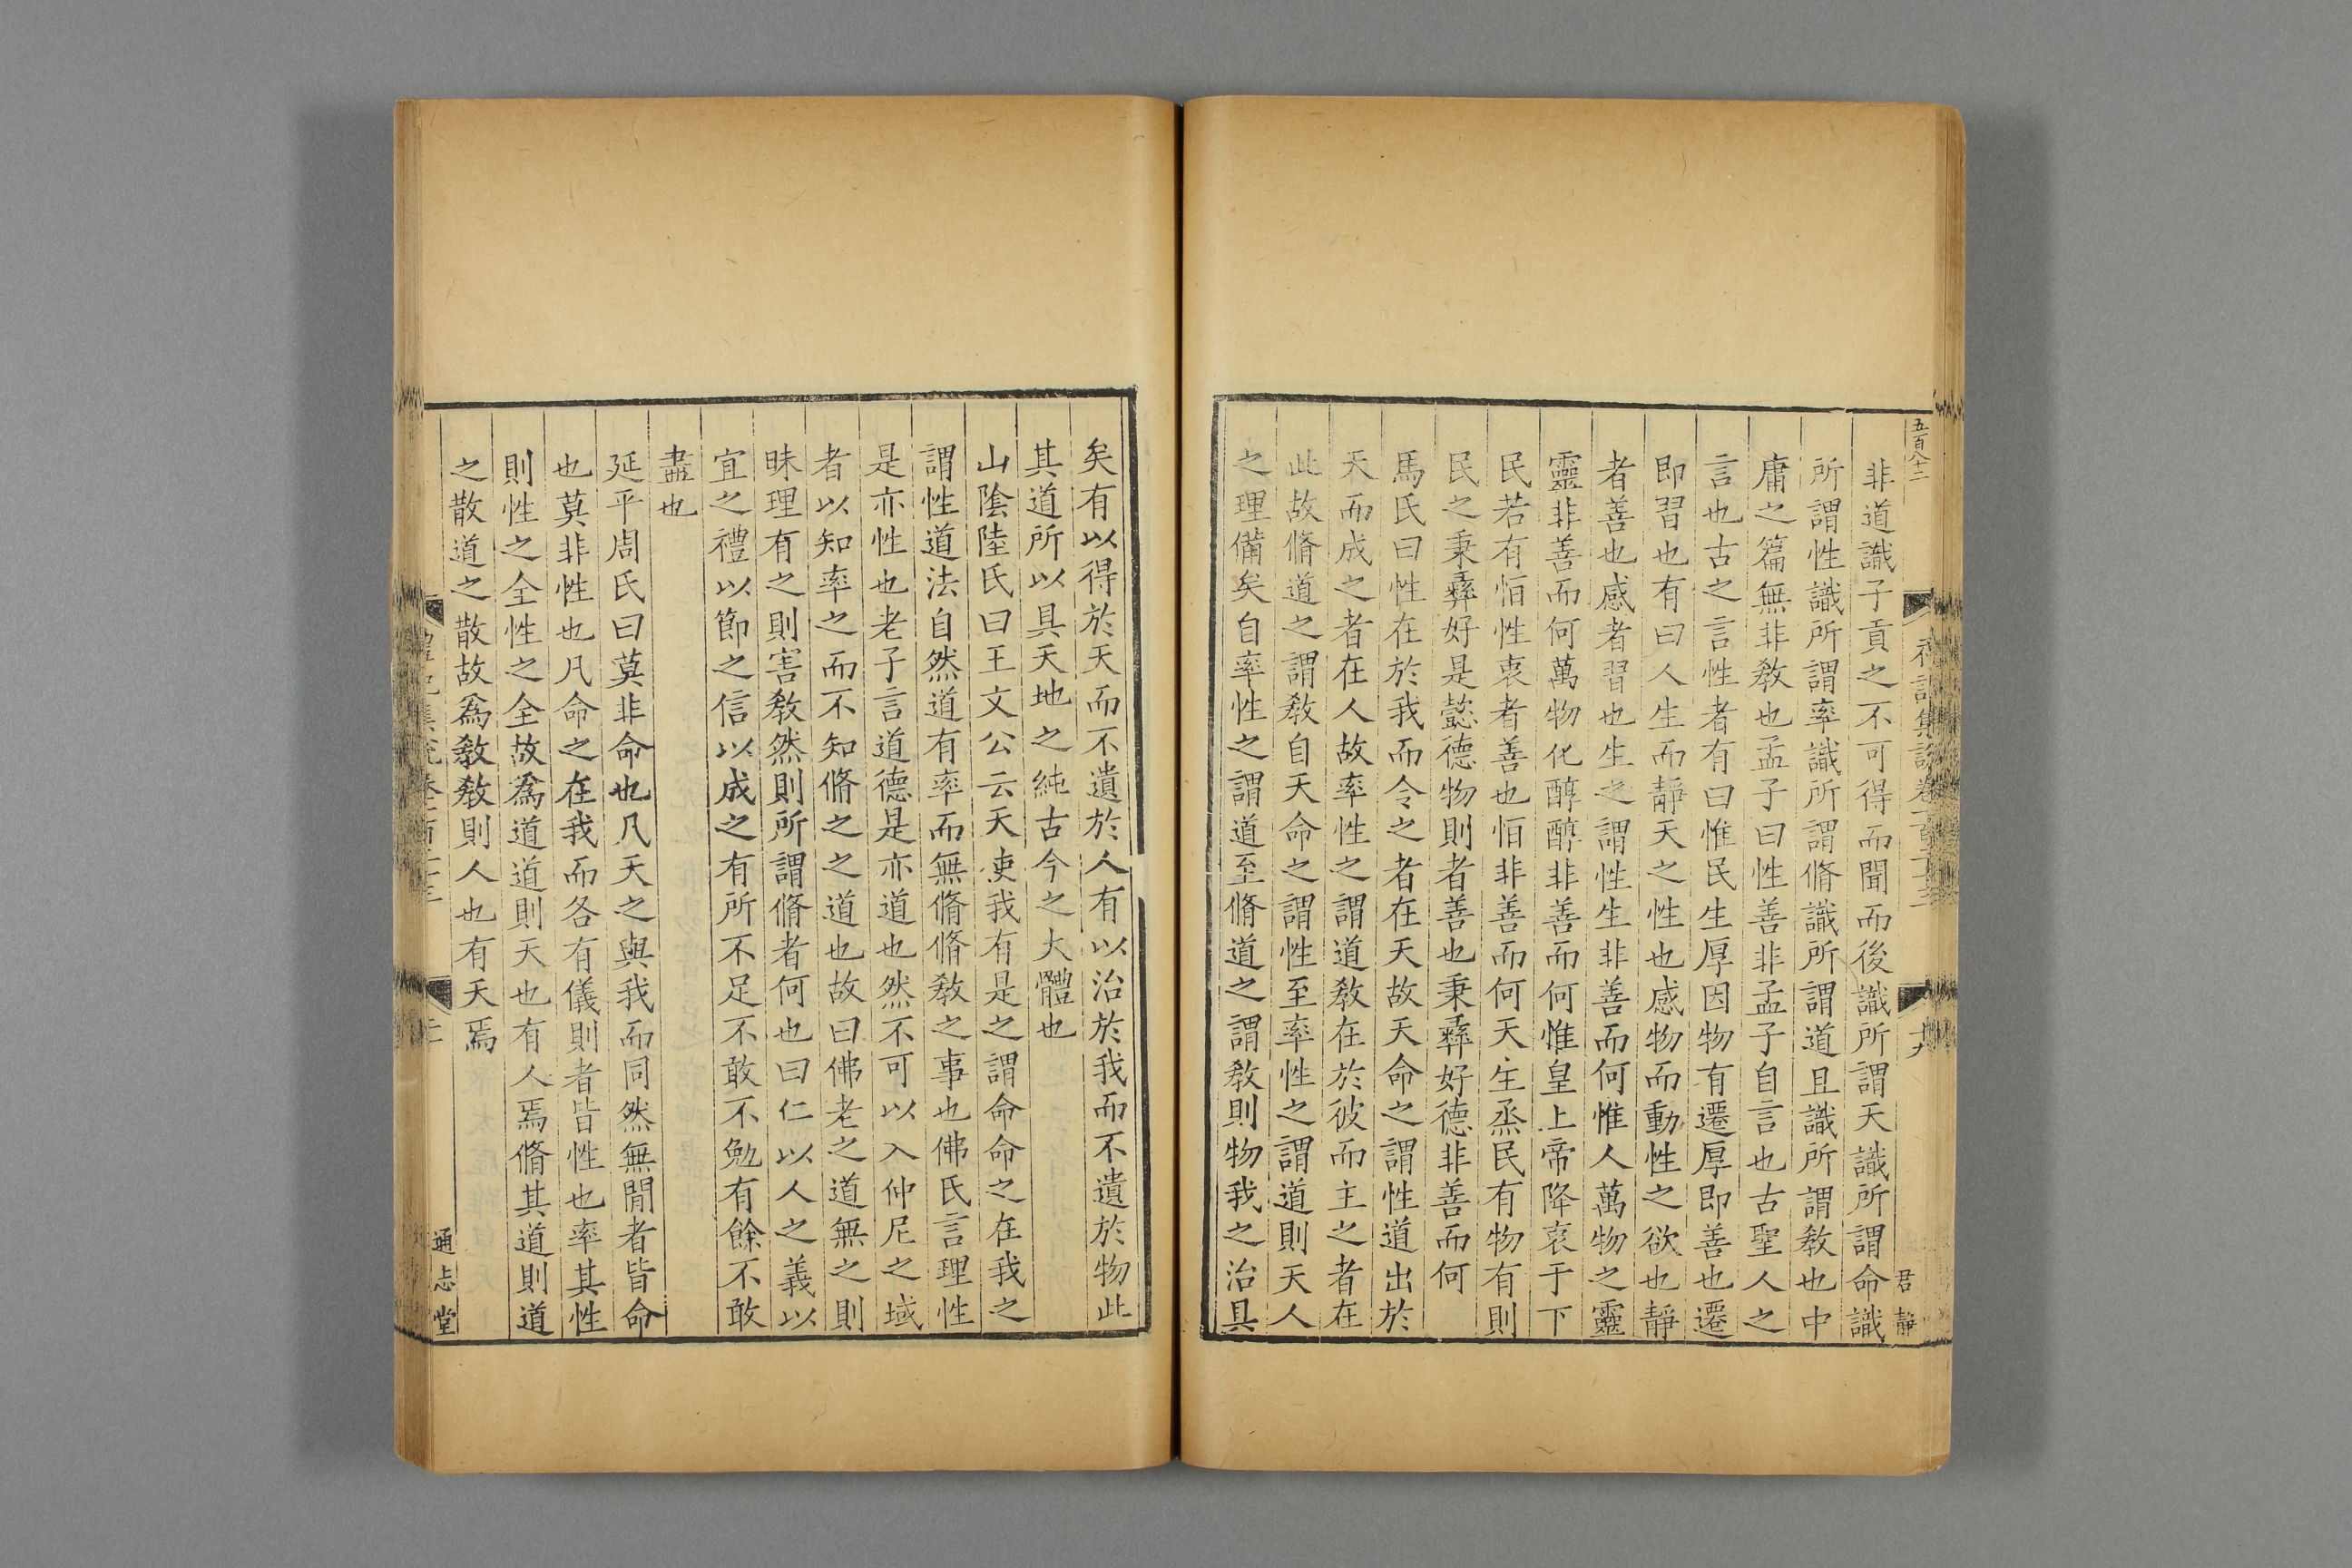 五百八十二
非道識子貢之不可得而聞而後識所謂天識所謂命識
所謂性識所謂率識所謂脩識所謂道且識所謂敎也中
庸之篇無非敎也孟子曰性善非孟子自言也古聖人之
言也古之言性者有曰惟民生厚因物有遷厚即善也遷
即習也有曰人生而靜天之性也感物而動性之欲也靜
者善也感者習也生之謂性生非善而何惟人萬物之靈
靈非善而何萬物化醇醇非善而何惟皇上帝降衷于下
民若有恒性衷者善也恒非善而何天生烝民有物有則
民之秉彝好是懿德物則者善也秉彝好德非善而何
馬氏曰性在於我而令之者在天故天命之謂性道出於
天而成之者在人故率性之謂道敎在於彼而主之者在
此故脩道之謂敎自天命之謂性至率性之謂道則天人
之理備矣自率性之謂道至脩道之謂敎則物我之治具
十九
君靜
矣有以得於天而不遺於人有以治於我而不遺於物此
其道所以具天地之純古今之大體也
山陰陸氏曰王文公云天使我有是之謂命命之在我之
謂性道法自然道有率而無脩脩敎之事也佛氏言理性
是亦性也老子言道德是亦道也然不可以入仲尼之域
者以知率之而不知脩之之道也故曰佛老之道無之則
昧理有之則害敎然則所謂脩者何也曰仁以人之義以
宜之禮以節之信以成之有所不足不敢不勉有餘不敢
盡也
延平周氏曰莫非命也凡天之與我而同然無閒者皆命
也莫非性也凡命之在我而各有儀則者皆性也率其性
則性之全性之全故爲道道則天也有人焉脩其道則道
之散道之散故爲敎敎則人也有天焉
通志堂